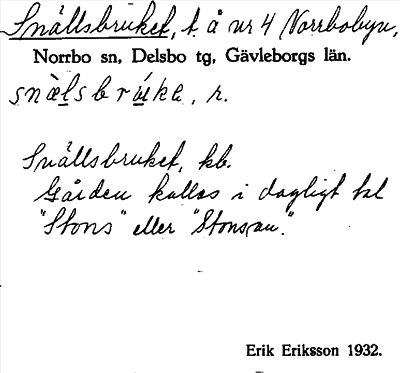 Snällsbruket, t. å nr 4 Norrbobyn,
Norrbo sn, Delsbo tg, Gävleborgs län.
snàl̲sbrú̲ke, n.
Snällsbruket, kb.
Gården kallas i dagligt tal
"Stons" eller "Stonsan."
Erik Eriksson 1932.